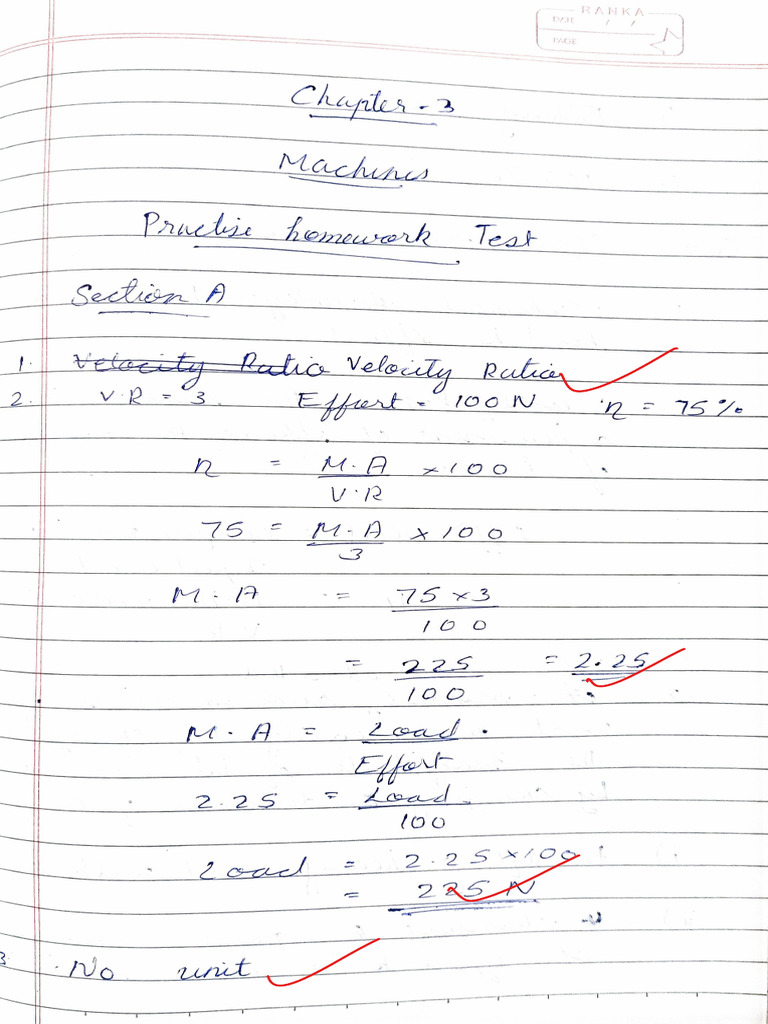 RANKA
DATE / /
PAGE
Chapter - 3
Machines
Practise homework Test
Section A
1. Velocity Ratio Velocity Ratio
2. V.R = 3. Effort = 100 N η = 75%
η = M.A / V.R × 100
75 = M.A / 3 × 100
M.A = 75 × 3 / 100
= 225 / 100 = 2.25
M.A = Load / Effort
2.25 = Load / 100
Load = 2.25 × 100
= 225 N
3 No unit